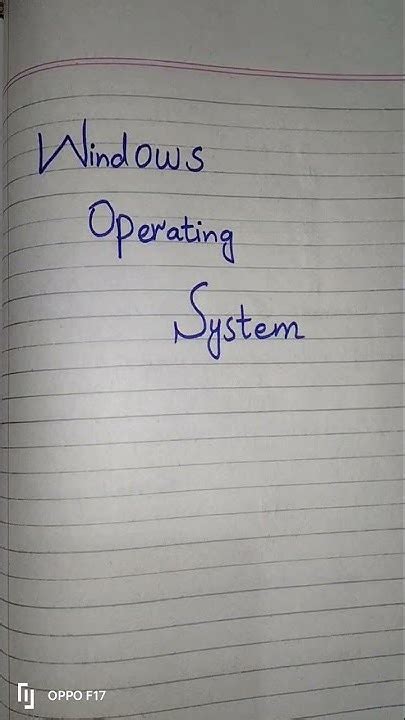 Windows
Operating
System
OPPO F17